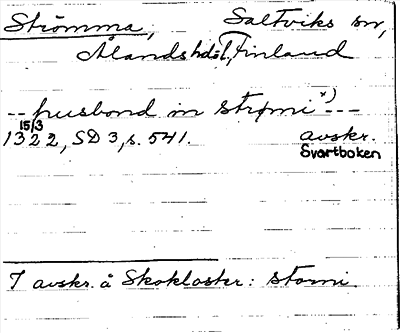 Strömma, Saltviks sn,
Ålands hd:t, Finland
-- husbond in strømi x) ---
15/3
1322, SD 3, s. 541. avskr.
Svartboken
I avskr. å Skokloster: stomi.